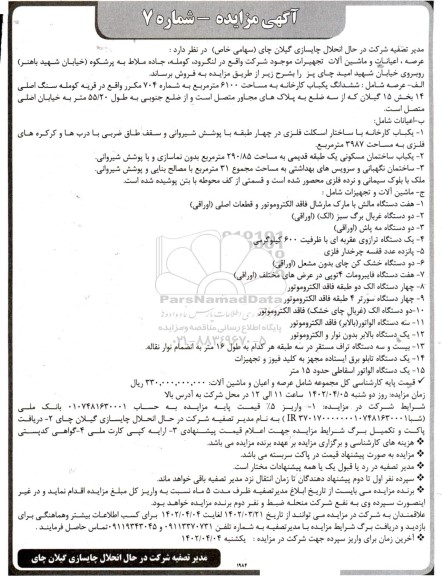 آگهی مزایده – شماره ۷
مدیر تصفیه شرکت در حال انحلال چایسازی گیلان چای (سهامی خاص) در نظر دارد :
عرصه ، اعیانات و ماشین آلات تجهیزات موجود شرکت واقع در لنگرود، کومله، جاده ملاط به پرشکوه (خیابان شهید باهنر)
روبروی خیابان شهید امید چای پز را بشرح زیر از طریق مزایده به فروش برساند.
الف- عرصه شامل : ششدانگ یکباب کارخانه به مساحت ۶۱۰۰ مترمربع به شماره ۷۰۴ مکرر واقع در قریه کومله سنگ اصلی
۱۴ بخش ۱۵ گیلان که از سه ضلع به پلاک های مجاور متصل است و از ضلع جنوبی به طول ۵۵/۲۰ متر به خیابان اصلی
متصل است.
ب-اعیانات شامل:
۱- یکباب کارخانه با ساختار اسکلت فلزی در چهار طبقه با پوشش شیروانی و سقف طاق ضربی با درب ها و کرکره های
فلزی به مساحت ۳۹۸۷ مترمربع.
۲- یکباب ساختمان مسکونی یک طبقه قدیمی به مساحت ۲۹۰/۸۵ مترمربع بدون نماسازی و با پوشش شیروانی.
۳- ساختمان نگهبانی و سرویس های بهداشتی به مساحت مجموع ۳۱ مترمربع با مصالح بنایی و پوشش شیروانی.
ملک با بلوک سیمانی و نرده فلزی محصور شده است و قسمتی از کف محوطه با بتن پوشیده شده است.
ج- ماشین آلات و تجهیزات شامل :
۱- هفت دستگاه مالش با مارک مارشال فاقد الکتروموتور و قطعات اصلی (اوراقی)
۲- دو دستگاه غربال برگ سبز (الک) (اوراقی)
۳- دو دستگاه مه پاش (اوراقی)
۴- یک دستگاه ترازوی عقربه ای با ظرفیت ۶۰۰ کیلوگرمی
۵- پانزده عدد قفسه چرخدار فلزی
۶- دو دستگاه خشک کن چای بدون مشعل (اوراقی)
۷- هفت دستگاه فایبرومات ۴توپی در عرض های مختلف (اوراقی)
۸- چهار دستگاه الک دو طبقه فاقد الکتروموتور
۹- چهار دستگاه سورتر ۴ طبقه فاقد الکتروموتور
۱۰- دو دستگاه الک (غربال چای خشک) فاقد الکتروموتور
۱۱- سه دستگاه الواتور(بالابر) فاقد الکتروموتور
۱۲- یک دستگاه بالابر بدون نوار و الکتروموتور
۱۳- بیست و سه دستگاه تراف مستقر در سه طبقه هر کدام به طول ۱۶ متر به انضمام نوار نقاله.
۱۴- یک دستگاه تابلو برق ایستاده مجهز به کلید فیوز و تجهیزات
۱۵- یک دستگاه الواتور اسقاطی حدود ۱۵ متر
✓ قیمت پایه کارشناسی کل مجموعه شامل عرصه و اعیان و ماشین آلات: ۳۳۰,۰۰۰,۰۰۰,۰۰۰ ریال
زمان مزایده: روز دو شنبه ۱۴۰۲/۰۴/۰۵ ساعت ۱۱ الی ۱۲ در محل شرکت به آدرس بالا
شرایط شرکت در مزایده: ۱- واریز ۵٪ قیمت پایه مزایده به حساب ۰۱۰۷۴۸۱۶۳۰۰۰۱ بانک ملی
به نام مدیر تصفیه شرکت در حال انحلال چایسازی گیلان چای ۲- دریافت
پاکت و تکمیل برگ شرایط مزایده جهت اعلام قیمت پیشنهادی ۳- ارایه کپی کارت ملی ۴-گواهی کدپستی
❖ هزینه های کارشناسی و برگزاری مزایده بر عهده برنده مزایده می باشد.
❖ مزایده به صورت پیشنهاد قیمت در پاکت سربسته می باشد.
❖ مدیر تصفیه در رد یا قبول یک یا همه پیشنهادات مختار است.
❖ سپرده نفر اول تا دوم پیشنهاد دهندگان تا زمان انتقال نزد مدیر تصفیه باقی خواهد ماند.
❖ برنده مزایده می بایست از تاریخ ابلاغ مدیرتصفیه ظرف مدت ۵ ماه نسبت به واریز کل مبلغ مزایده اقدام نماید و در غیر
اینصورت سپرده وی به نفع شرکت منحله ضبط و نفر دوم برنده مزایده خواهد بود.
علاقمندان به شرکت در مزایده می توانند از تاریخ ۱۴۰۲/۰۳/۲۱ لغایت ۱۴۰۲/۰۴/۰۴ برای کسب اطلاعات بیشتر وهماهنگی برای
بازدید و دریافت برگ شرایط مزایده با مدیرتصفیه به شماره تلفن ۰۹۱۱۳۳۷۰۷۳۱ و ۰۹۱۱۹۳۴۳۰۴۵ تماس حاصل فرمایند .
❖ آخرین زمان برای واریز سپرده جهت شرکت در مزایده : یکشنبه ۱۴۰۲/۰۴/۰۴
مدیر تصفیه شرکت در حال انحلال چایسازی گیلان چای
۱۹۸۲
ParsNamadData
پایگاه اطلاع رسانی مناقصه و مزایده
۰۲۱-۸۸۳۴۹۶۷۰